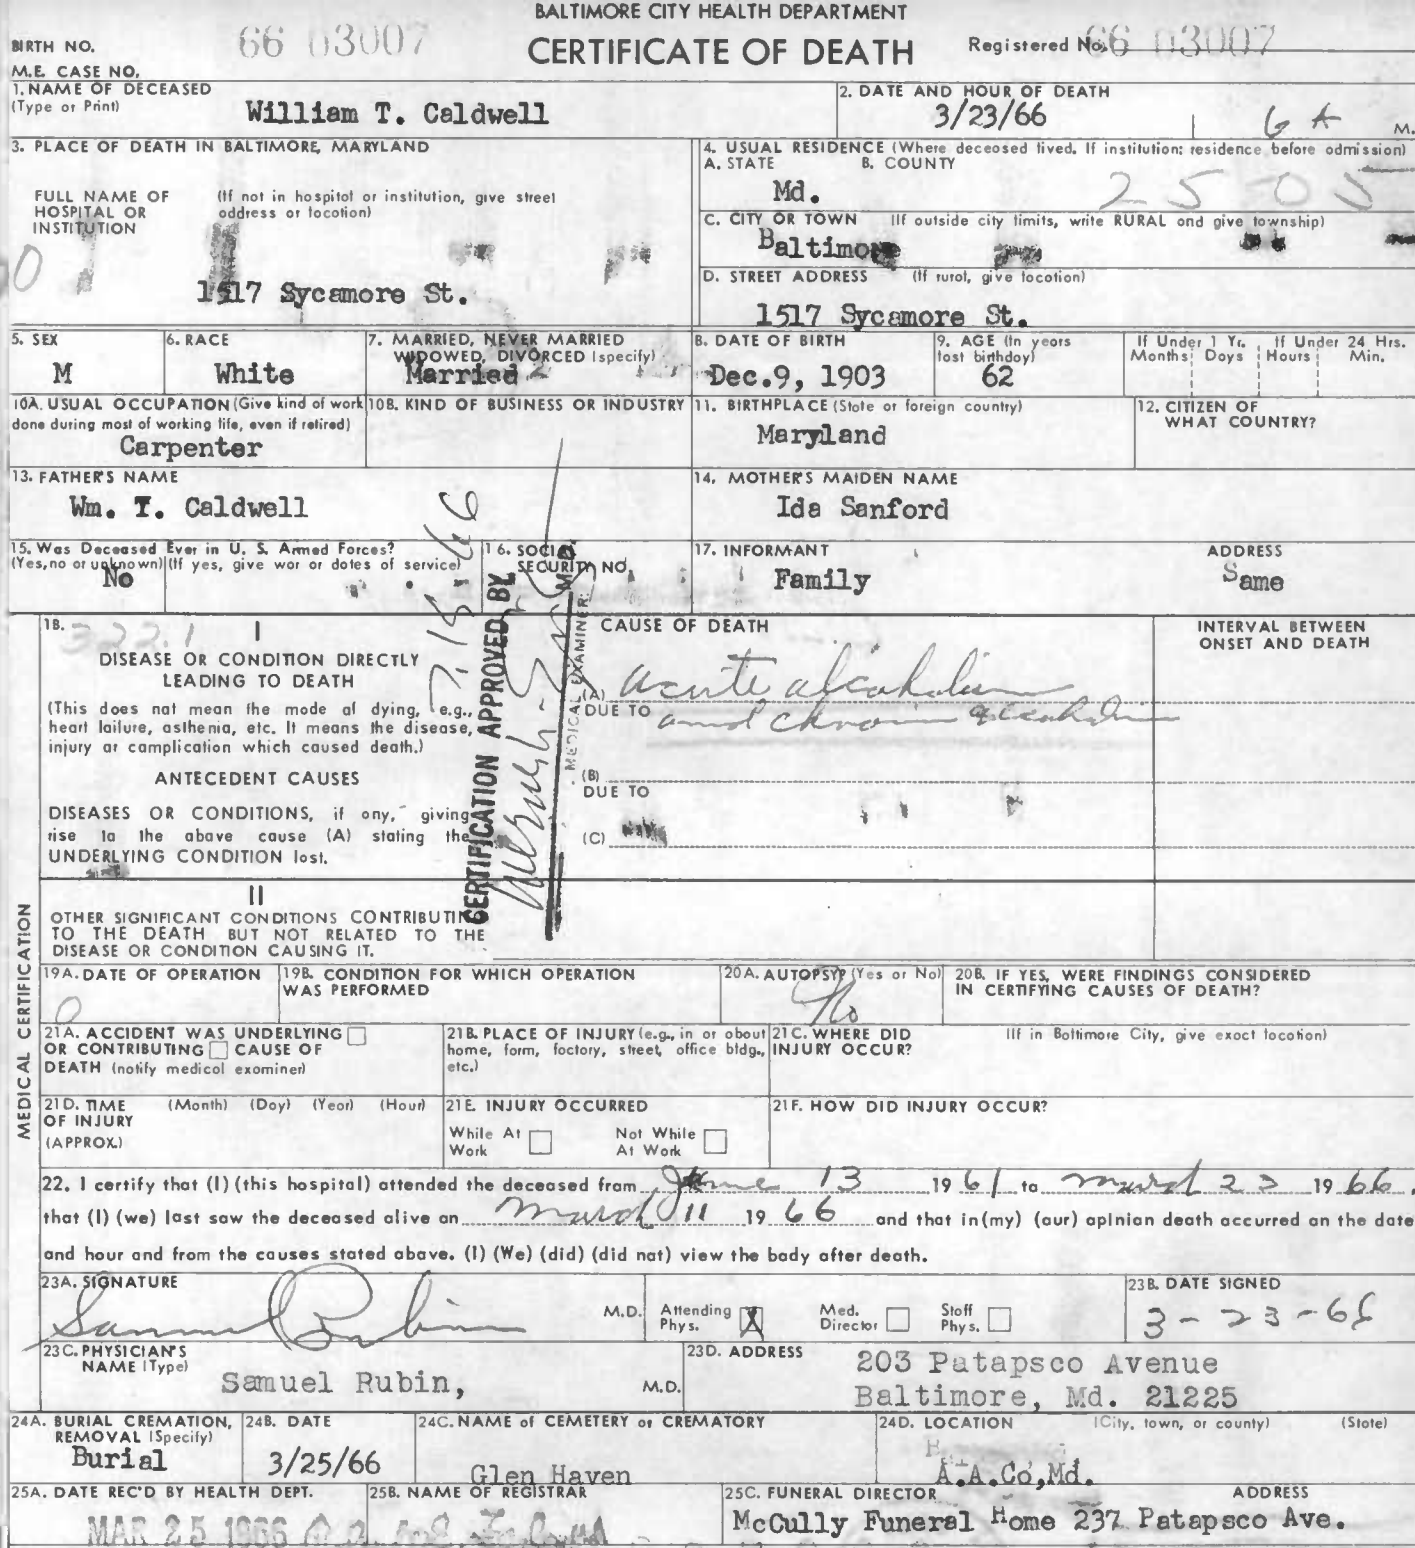 BALTIMORE CITY HEALTH DEPARTMENT
BIRTH NO. 66 03007 CERTIFICATE OF DEATH Registered No. 66 03007
M.E. CASE NO.
1. NAME OF DECEASED
(Type or Print) William T. Caldwell
2. DATE AND HOUR OF DEATH
3/23/66 6 A M.
3. PLACE OF DEATH IN BALTIMORE, MARYLAND
FULL NAME OF HOSPITAL OR INSTITUTION
(If not in hospital or institution, give street address or location)
1517 Sycamore St.
4. USUAL RESIDENCE (Where deceased lived. If institution: residence before admission)
A. STATE B. COUNTY
Md. 25-05
C. CITY OR TOWN (If outside city limits, write RURAL and give township)
Baltimore
D. STREET ADDRESS (If rural, give location)
1517 Sycamore St.
5. SEX
M
6. RACE
White
7. MARRIED, NEVER MARRIED
WIDOWED, DIVORCED (specify)
Married 2
8. DATE OF BIRTH
Dec.9, 1903
9. AGE (In years
last birthday)
62
If Under 1 Yr. If Under 24 Hrs.
Months Days Hours Min.
10A. USUAL OCCUPATION (Give kind of work
done during most of working life, even if retired)
Carpenter
10B. KIND OF BUSINESS OR INDUSTRY
11. BIRTHPLACE (State or foreign country)
Maryland
12. CITIZEN OF
WHAT COUNTRY?
13. FATHER'S NAME
Wm. T. Caldwell
14. MOTHER'S MAIDEN NAME
Ida Sanford
15. Was Deceased Ever in U. S. Armed Forces?
(Yes, no or unknown) (If yes, give war or dates of service)
No
16. SOCIAL
SECURITY NO.
17. INFORMANT ADDRESS
Family Same
18. 322.1 I
DISEASE OR CONDITION DIRECTLY
LEADING TO DEATH
(This does not mean the mode of dying, e.g.,
heart failure, asthenia, etc. It means the disease,
injury or complication which caused death.)
ANTECEDENT CAUSES
DISEASES OR CONDITIONS, if any, giving
rise to the above cause (A) stating the
UNDERLYING CONDITION last.
CERTIFICATION APPROVED BY
M.D.
MEDICAL EXAMINER
CAUSE OF DEATH
(A) acute alcoholism
DUE TO and chronic alcoholism
(B)
DUE TO
(C)
INTERVAL BETWEEN
ONSET AND DEATH
II
OTHER SIGNIFICANT CONDITIONS CONTRIBUTING
TO THE DEATH BUT NOT RELATED TO THE
DISEASE OR CONDITION CAUSING IT.
MEDICAL CERTIFICATION
19A. DATE OF OPERATION
0
19B. CONDITION FOR WHICH OPERATION
WAS PERFORMED
20A. AUTOPSY? (Yes or No)
No
20B. IF YES, WERE FINDINGS CONSIDERED
IN CERTIFYING CAUSES OF DEATH?
21A. ACCIDENT WAS UNDERLYING
OR CONTRIBUTING CAUSE OF
DEATH (notify medical examiner)
21B. PLACE OF INJURY (e.g., in or about
home, farm, factory, street, office bldg.,
etc.)
21C. WHERE DID
INJURY OCCUR?
(If in Baltimore City, give exact location)
21D. TIME (Month) (Day) (Year) (Hour)
OF INJURY
(APPROX.)
21E. INJURY OCCURRED
While At Work Not While At Work
21F. HOW DID INJURY OCCUR?
22. I certify that (I) (this hospital) attended the deceased from June 13 1961 to March 23 1966,
that (I) (we) last saw the deceased alive on March 11 1966 and that in (my) (our) opinion death occurred on the date
and hour and from the causes stated above. (I) (We) (did) (did not) view the body after death.
23A. SIGNATURE
Samuel Rubin M.D. Attending Phys. X Med. Director Staff Phys.
23B. DATE SIGNED
3-23-66
23C. PHYSICIAN'S
NAME (Type) Samuel Rubin, M.D.
23D. ADDRESS 203 Patapsco Avenue
Baltimore, Md. 21225
24A. BURIAL CREMATION,
REMOVAL (Specify)
Burial
24B. DATE
3/25/66
24C. NAME of CEMETERY or CREMATORY
Glen Haven
24D. LOCATION (City, town, or county) (State)
A.A.Co,Md.
25A. DATE REC'D BY HEALTH DEPT.
MAR 25 1966
25B. NAME OF REGISTRAR
25C. FUNERAL DIRECTOR ADDRESS
McCully Funeral Home 237 Patapsco Ave.